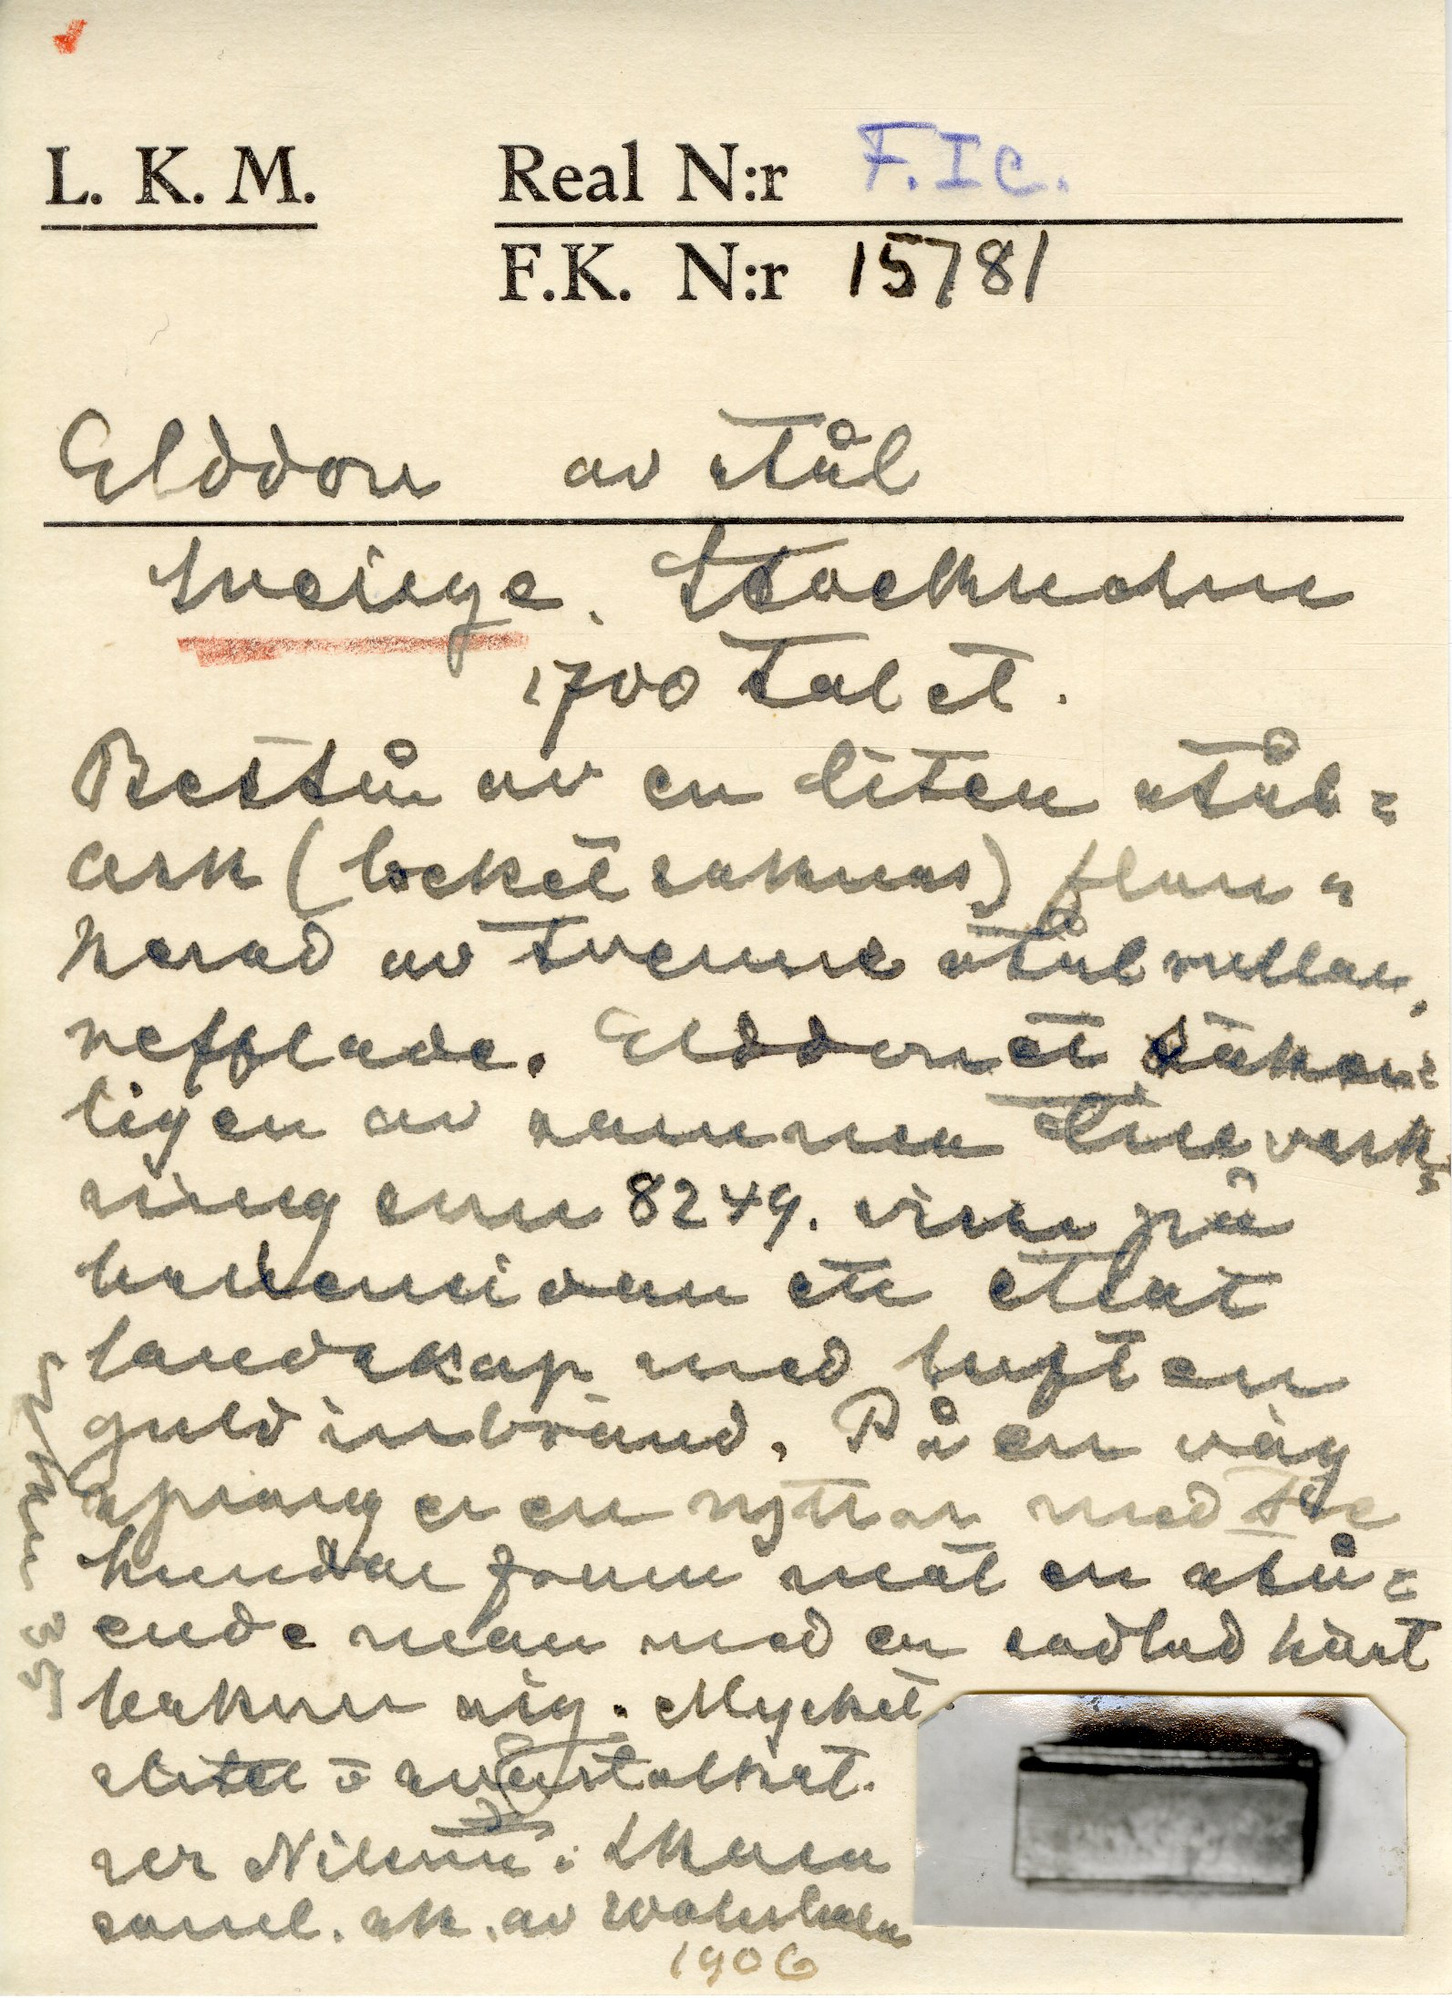 L. K. M.
Real N:r F.Ic.
F.K. N:r 15781
Elddon av stål
Sverige. Stockholm
1700 talet.
Består av en liten stål=
ask (locket saknas) flan=
kerad av tvenne stålrullar,
refflade. Elddonet
ligen av samma tillverk=
ning som 8249. visar på
ett etsat
landskap med luften
guld inbränd. På en väg
springer en ryttare med två
hundar fram mot en stå=
ende man med en sadlad häst
bakom sig. Mycket
slitet o
ser Nilsson i Skara
saml. ak. av
1906
35